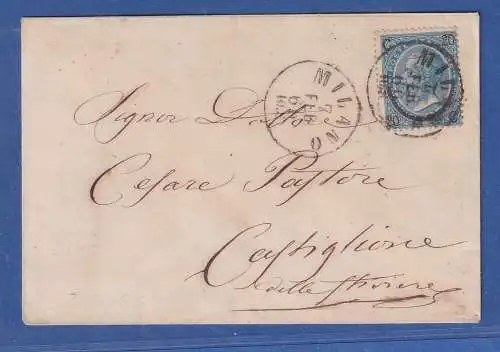 MILANO
FEB
20 20
MIL
FEB
Signor Dottor
Cesare Pastore
Castiglione
delle Stiviere